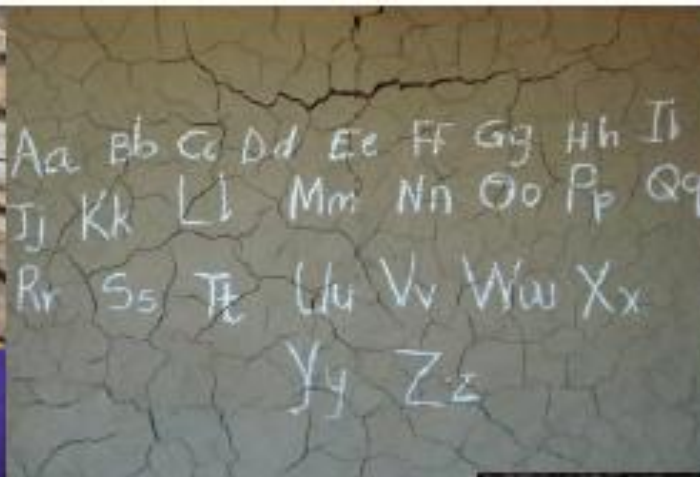 Aa Bb Cc Dd Ee Ff Gg Hh Ii
Jj Kk Ll Mm Nn Oo Pp Qq
Rr Ss Tt Uu Vv Ww Xx
Yy Zz